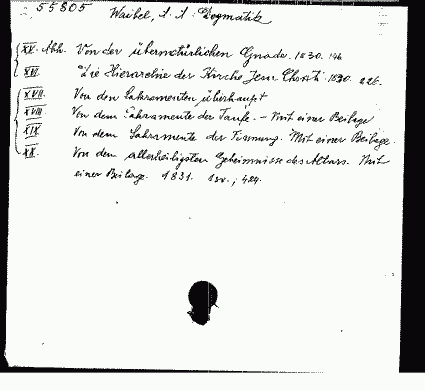 55805 Waibel, A. A.: Dogmatik
XV. Abh. Von der übernatürlichen Gnade. 1830. 146
XVI. Die Hierarchie der Kirche Jesu Christi. 1830. 226.
XVII. Von den Sakramenten überhaupt
XVIII. Von dem Sakramente der Taufe. - Mit einer Beilage
XIX. Von dem Sakramente der Firmung. Mit einer Beilage.
XX. Von dem allerheiligsten Geheimnisse des Altars. Mit
einer Beilage. 1831. ; 424.